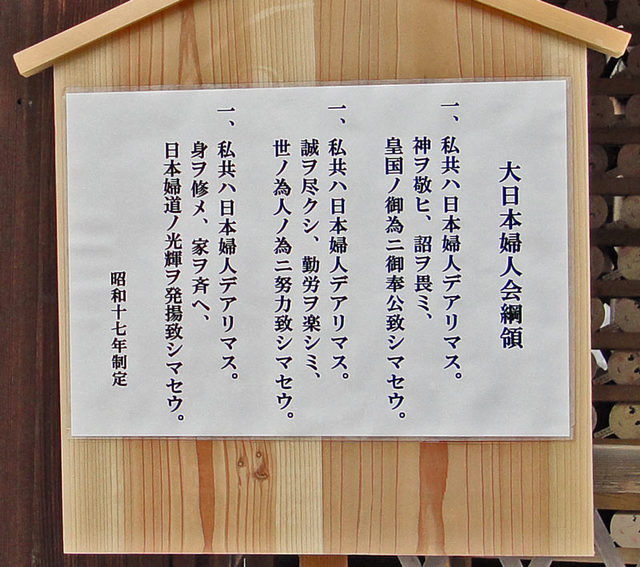 大日本婦人会綱領
一、私共ハ日本婦人デアリマス。
神ヲ敬ヒ、詔ヲ畏ミ、
皇国ノ御為ニ御奉公致シマセウ。
一、私共ハ日本婦人デアリマス。
誠ヲ尽クシ、勤労ヲ楽シミ、
世ノ為人ノ為ニ努力致シマセウ。
一、私共ハ日本婦人デアリマス。
身ヲ修メ、家ヲ斉ヘ、
日本婦道ノ光輝ヲ発揚致シマセウ。
昭和十七年制定